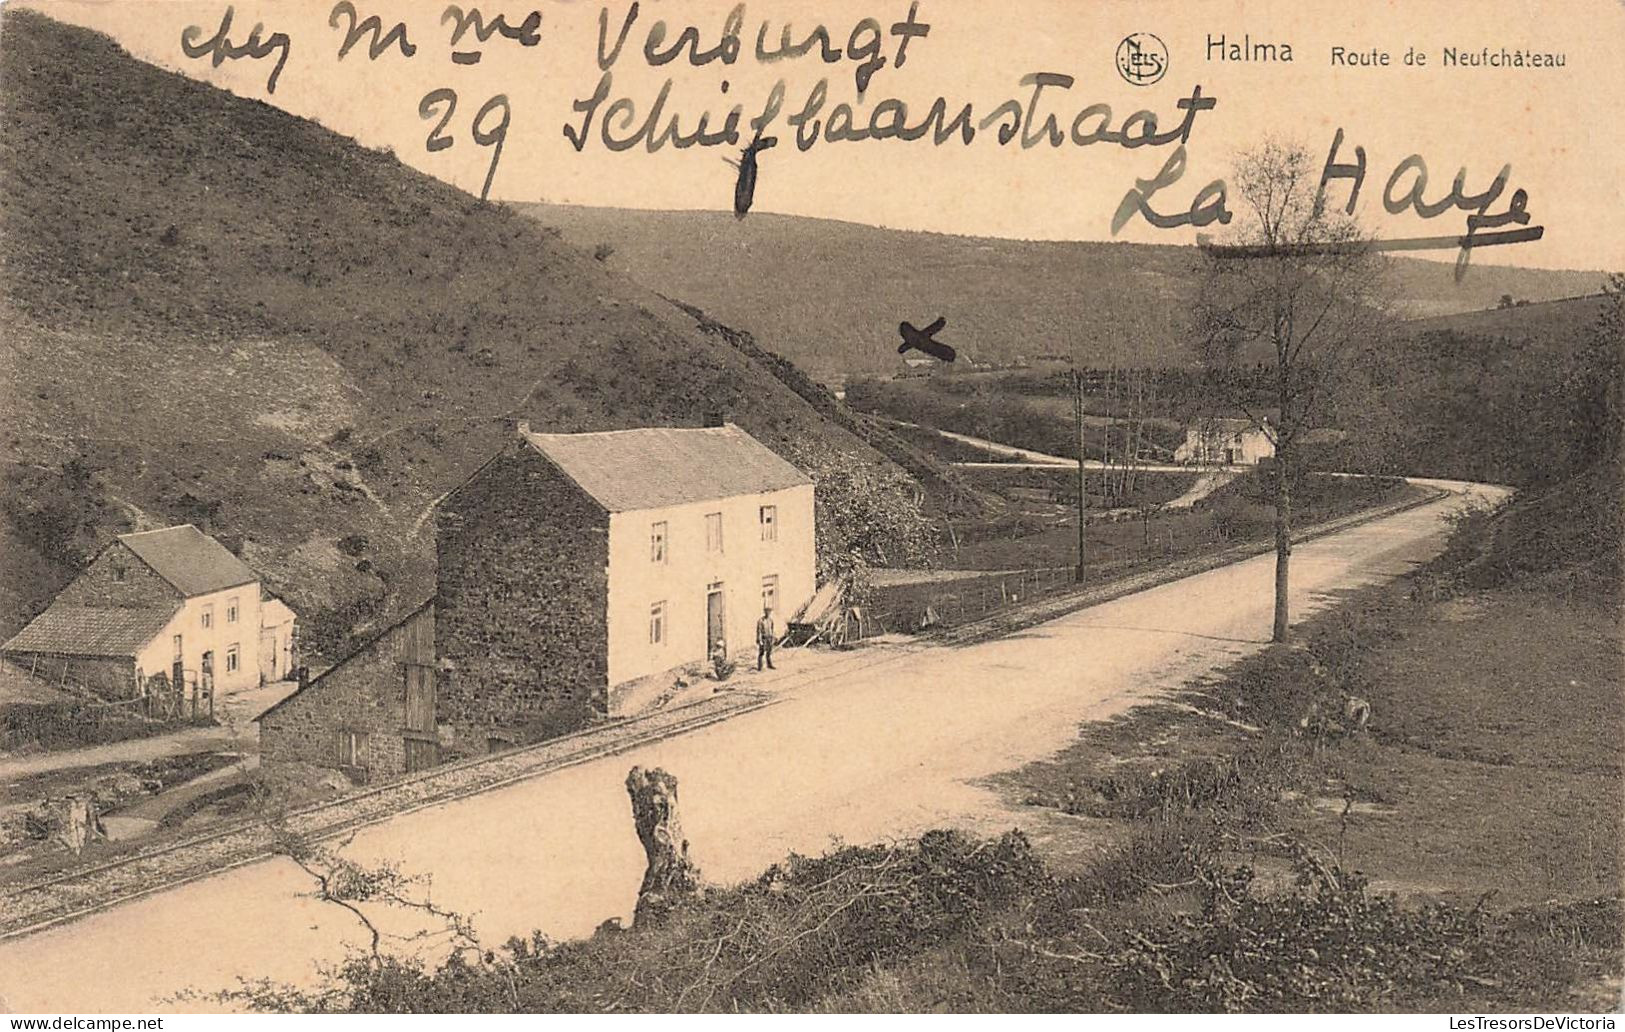 chez Mme Verburgt
NELS
Halma Route de Neufchâteau
29 Schiefbaanstraat
La Haye
LesTresorsDeVictoria